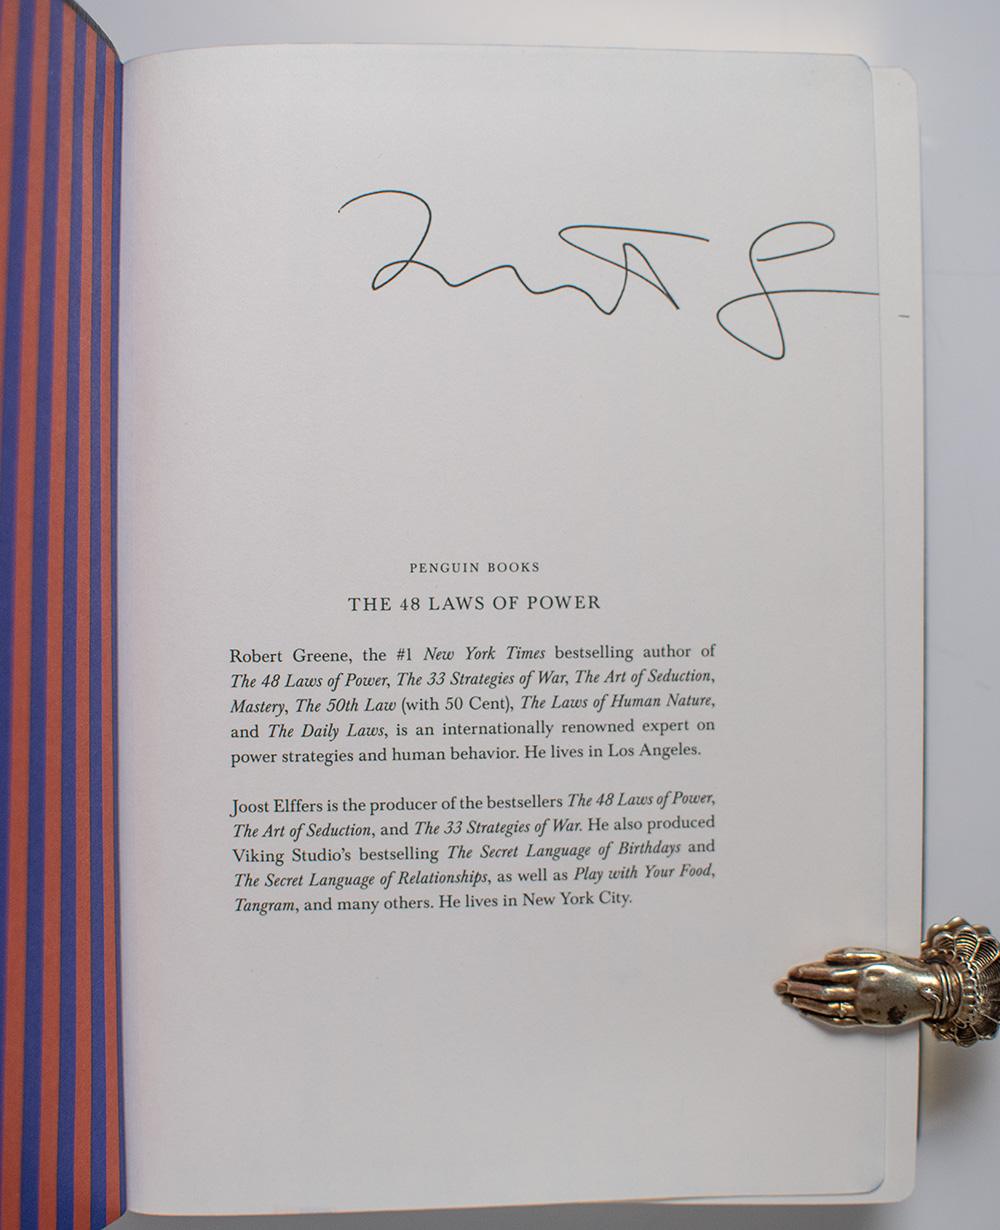 PENGUIN BOOKS
THE 48 LAWS OF POWER
Robert Greene, the #1 New York Times bestselling author of
The 48 Laws of Power, The 33 Strategies of War, The Art of Seduction,
Mastery, The 50th Law (with 50 Cent), The Laws of Human Nature,
and The Daily Laws, is an internationally renowned expert on
power strategies and human behavior. He lives in Los Angeles.
Joost Elffers is the producer of the bestsellers The 48 Laws of Power,
The Art of Seduction, and The 33 Strategies of War. He also produced
Viking Studio’s bestselling The Secret Language of Birthdays and
The Secret Language of Relationships, as well as Play with Your Food,
Tangram, and many others. He lives in New York City.